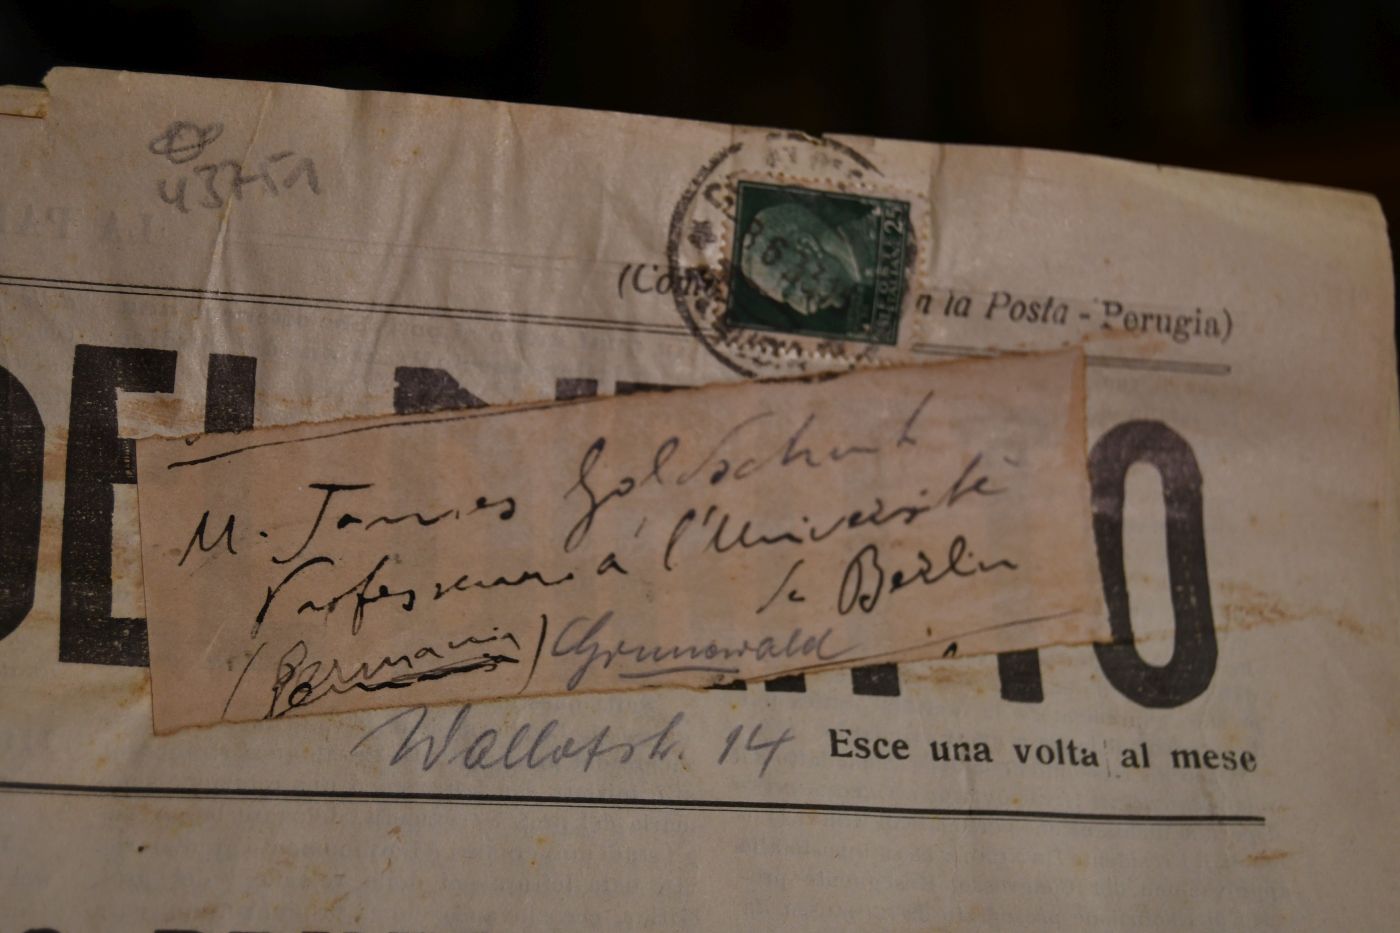 43751
(Con n la Posta - Perugia)
25
DEL O
M. James Goldschmidt
Professeur à l'Université
de Berlin
(Germania) Grunewald
Wallotstr. 14
Esce una volta al mese